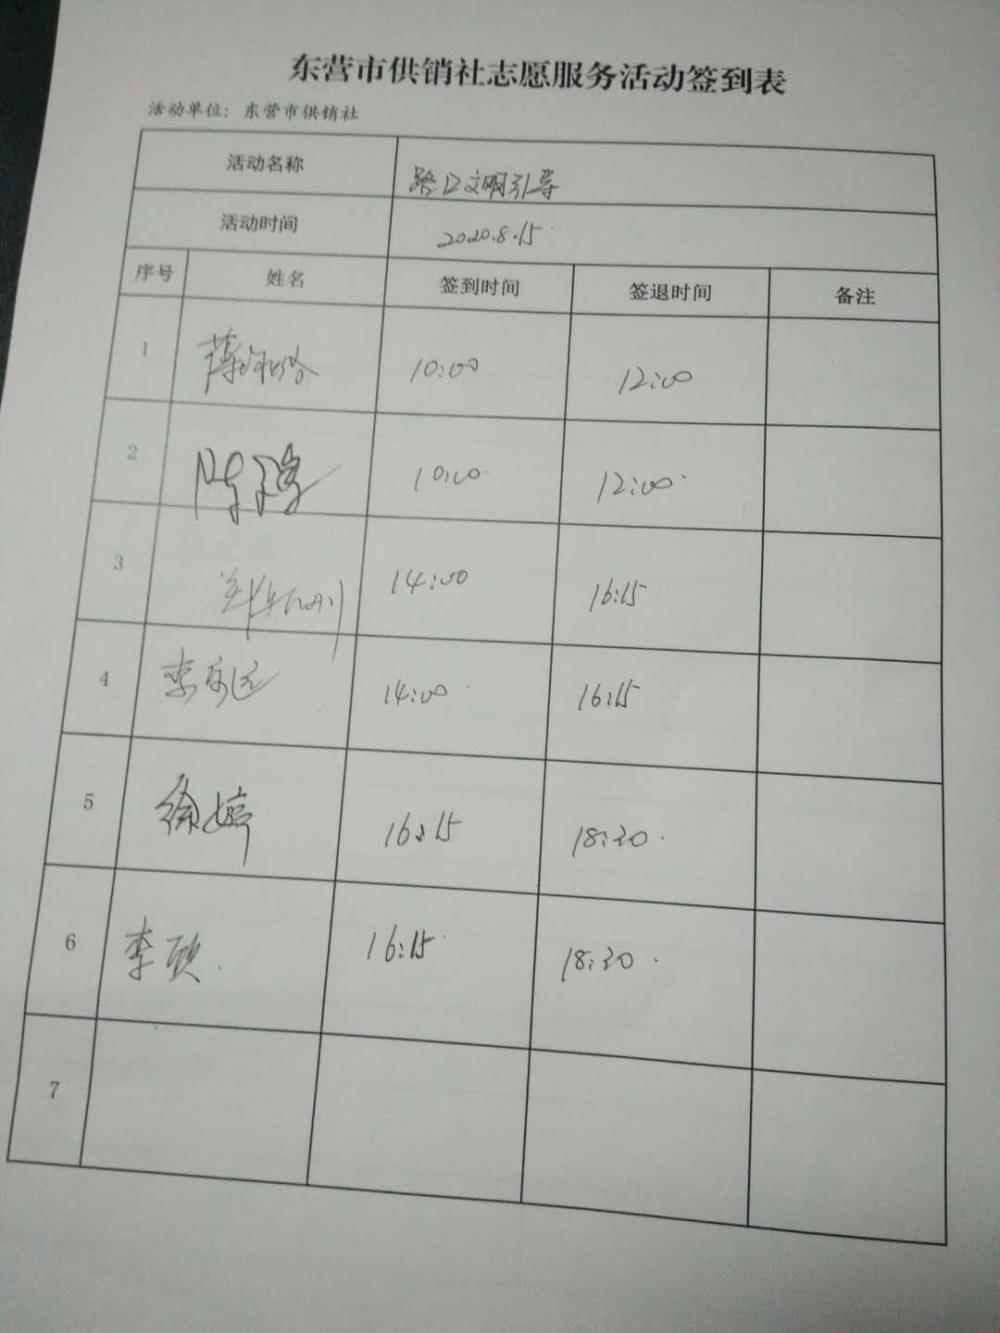 东营市供销社志愿服务活动签到表
活动单位：东营市供销社
活动名称 路口文明引导
活动时间 2020.8.15
序号 姓名 签到时间 签退时间 备注
1 10:00 12:00
2 10:00 12:00
3 14:00 16:15
4 14:00 16:15
5 徐婷 16:15 18:30
6 16:15 18:30
7